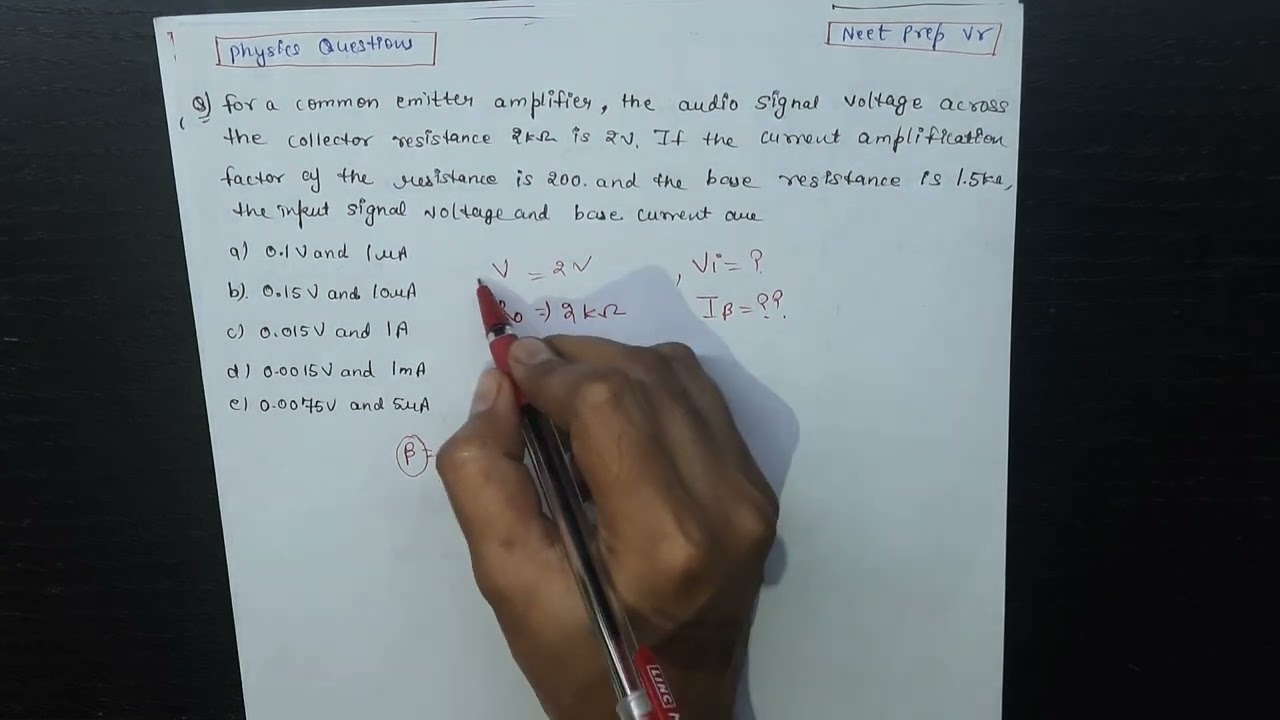 Physics Questions
Neet Prep Vr
Q) for a common emitter amplifier, the audio signal voltage across
the collector resistance 2kΩ is 2V. If the current amplification
factor of the resistance is 200. and the base resistance is 1.5kΩ,
the input signal voltage and base current are
a) 0.1V and 1μA
b). 0.15V and 10μA
c) 0.015V and 1A
d) 0.0015V and 1mA
e) 0.0075V and 5μA
V = 2V , Vi = ?
⇒ 2kΩ Iβ = ??
β =
LINC